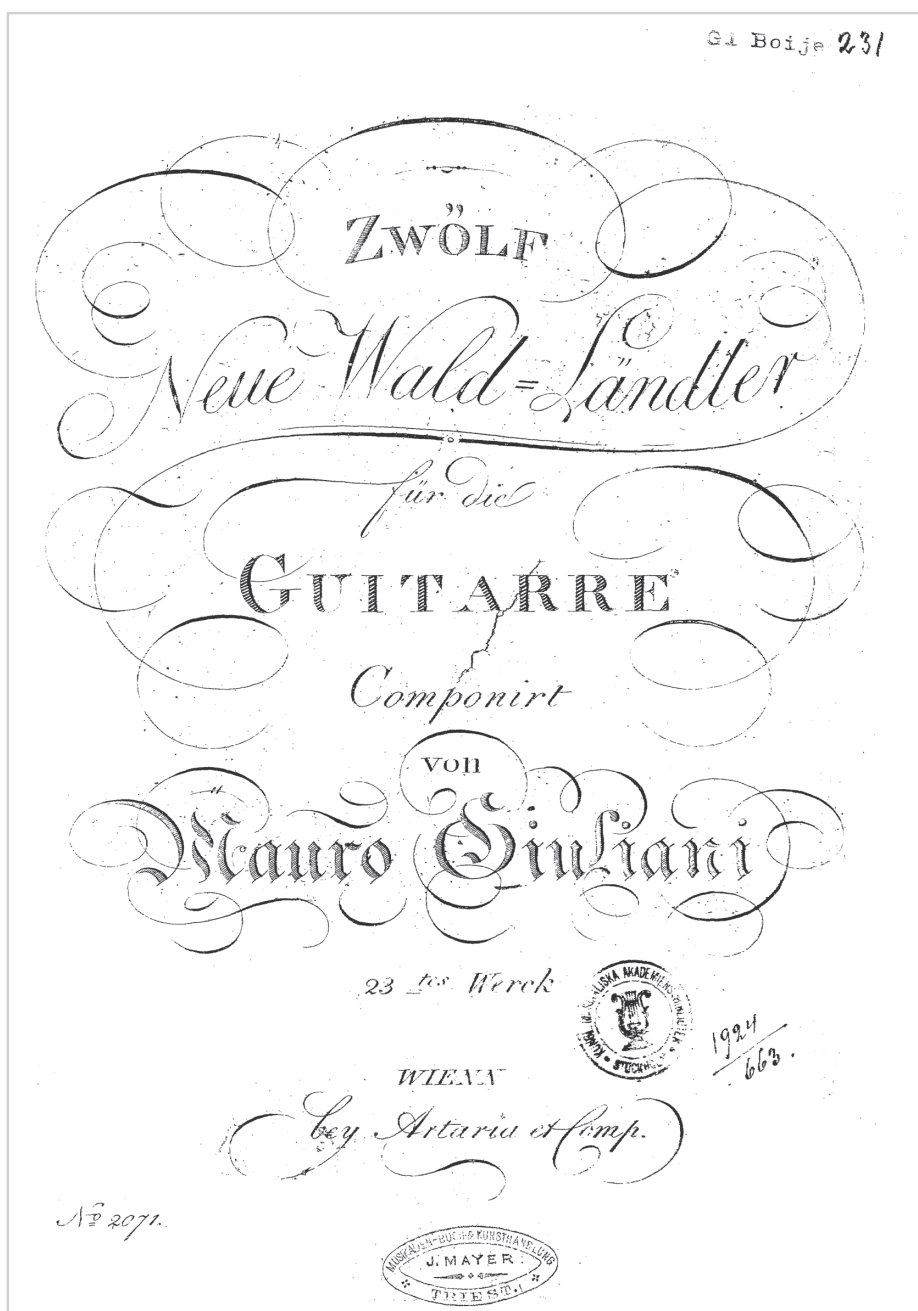 Gl Boije 231
ZWÖLF
Neue Wald=Ländler
für die
GUITARRE
Componirt
von
Mauro Giuliani
23 tes Werck
KUNGL. MUSIKALISKA AKADEMIENS BIBLIOTEK
STOCKHOLM
1924
663.
WIENN
bey Artaria et Comp.
No 2071.
MUSIKALIEN-BUCH & KUNSTHANDLUNG
J. MAYER
TRIEST.